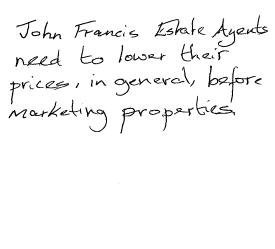 John Francis Estate Agents
need to lower their
prices, in general, before
marketing properties.